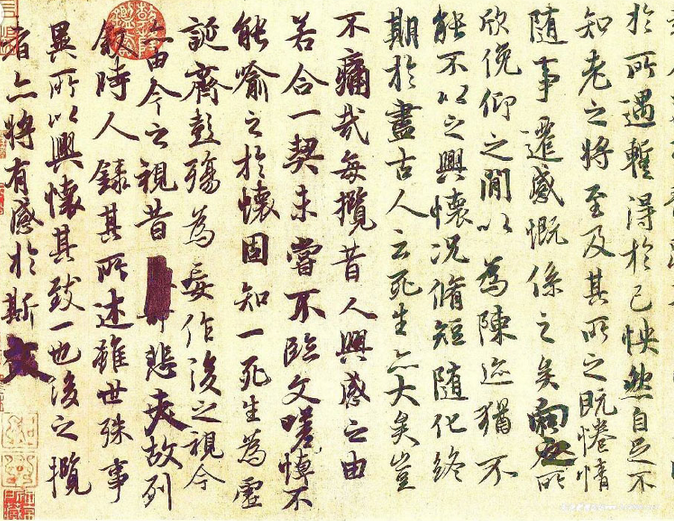 於所遇蹔得於己怏然自足不
知老之將至及其所之既惓情
隨事遷感慨係之矣向之所
欣俛仰之間以為陳迹猶不
能不以之興懷況脩短隨化終
期於盡古人云死生亦大矣豈
不痛哉每攬昔人興感之由
若合一契未嘗不臨文嗟悼不
能喻之於懷固知一死生為虛
誕齊彭殤為妄作後之視今
亦由今之視昔悲夫故列
敘時人錄其所述雖世殊事
異所以興懷其致一也後之攬
者亦將有感於斯文